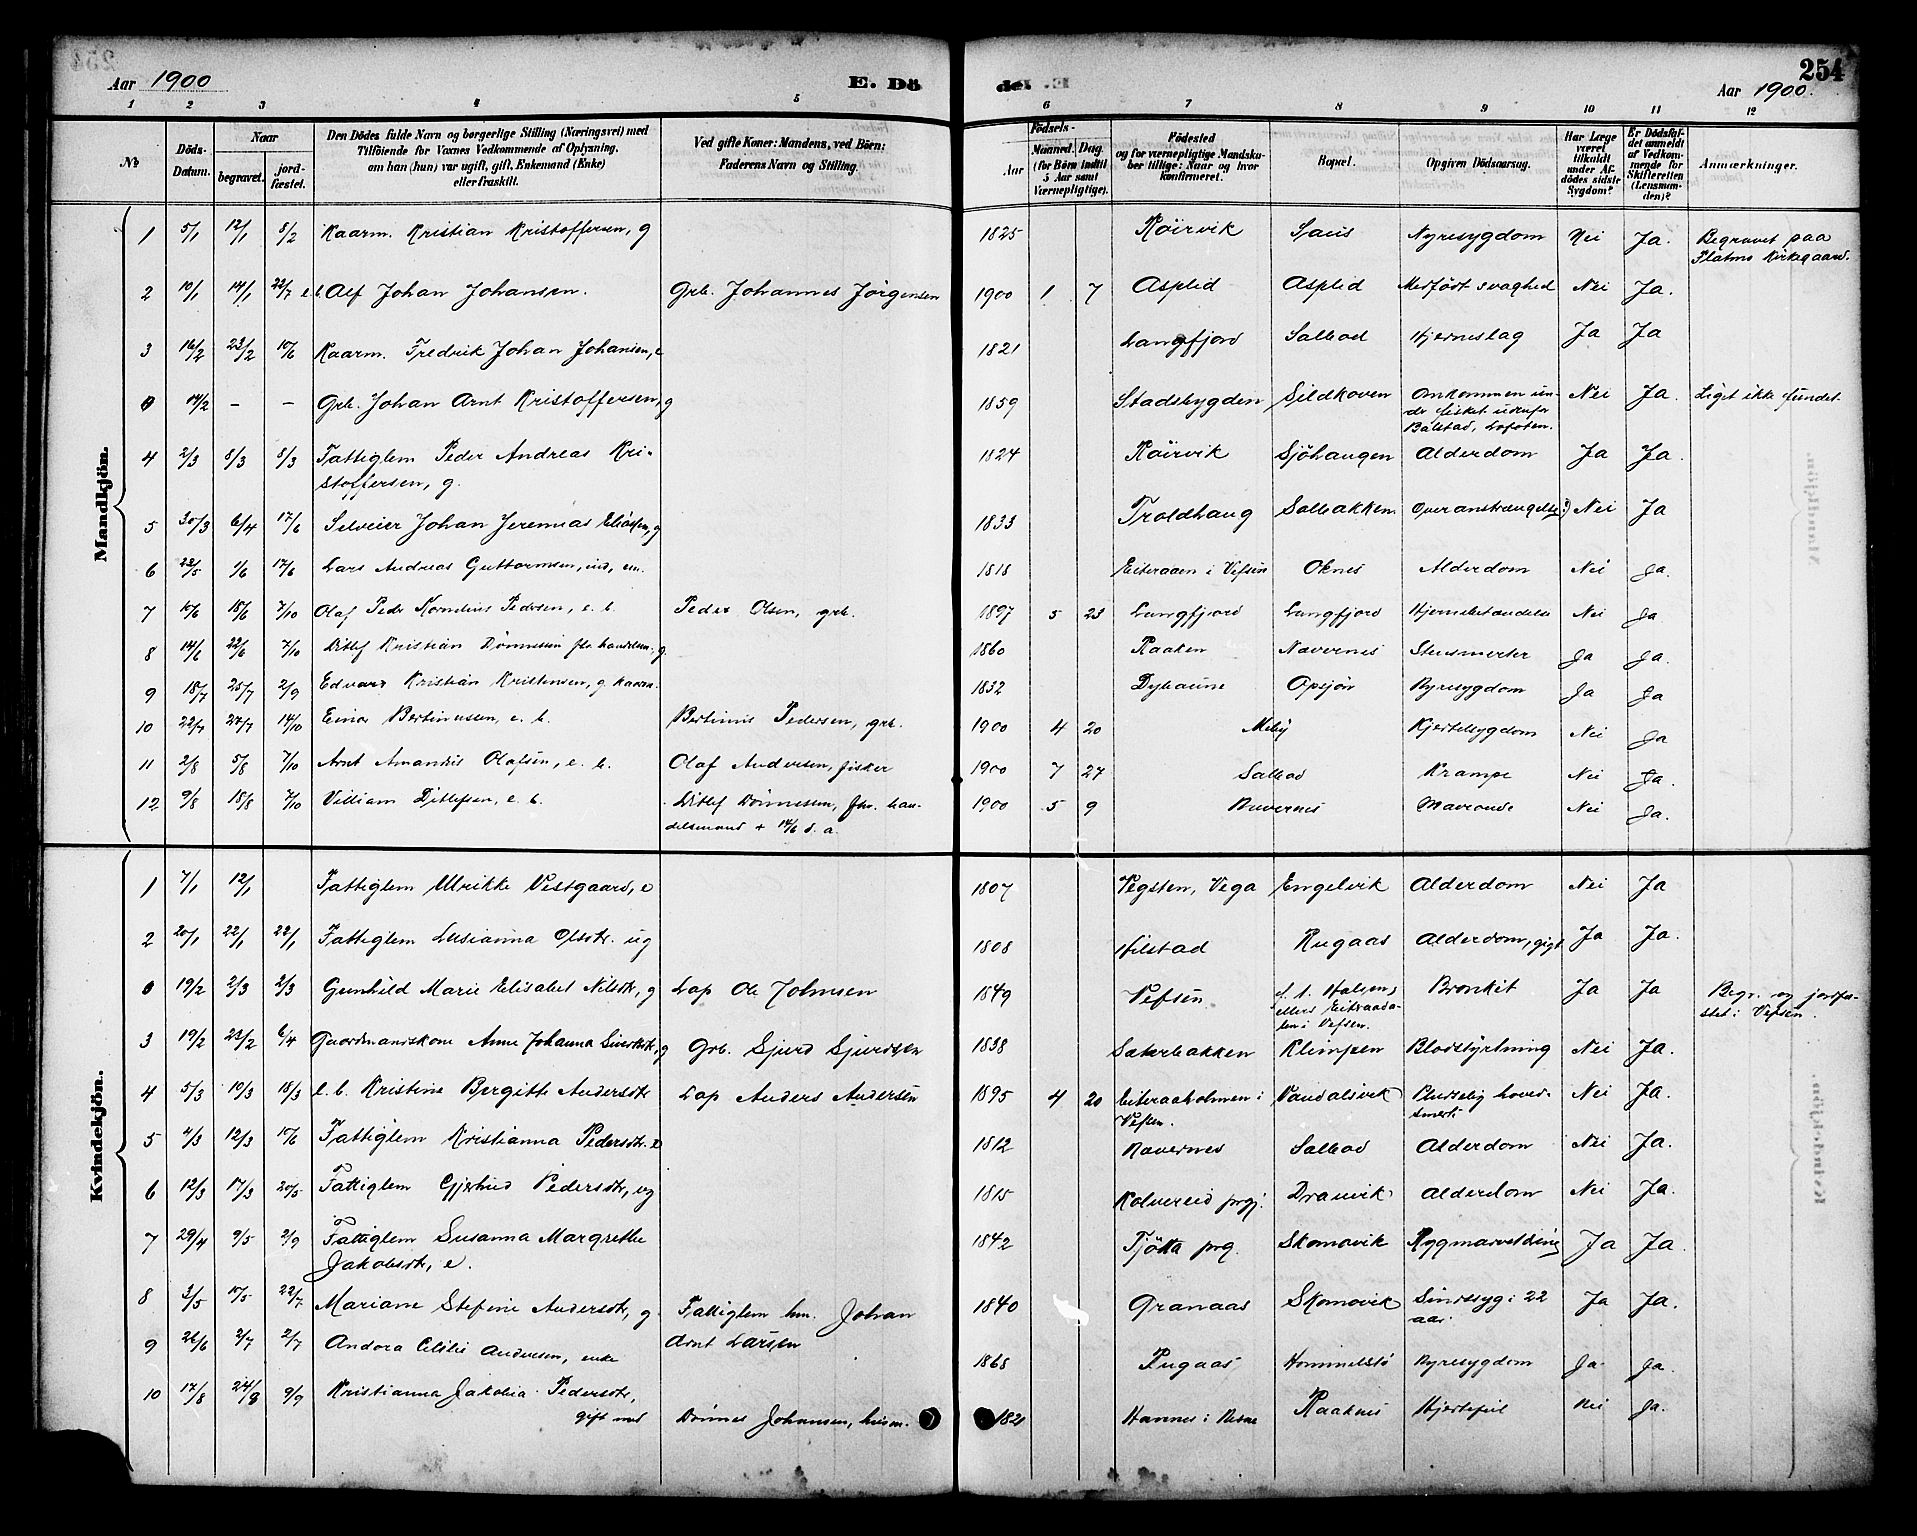 254
Aar 1900
E. Dö
de.
Aar 1900.
1 2 3 4 5 6 7 8 9 10 11 12
No
Döds-Datum.
Naar
begravet.
jord-fæstet.
Den Dödes fulde Navn og borgerlige Stilling (Næringsvei) med
Tilföiende for Voxnes Vedkommende af Oplysning,
om han (hun) var ugift, gift, Enkemand (Enke)
eller fraskilt.
Ved gifte Koner: Mandens, ved Börn:
Faderens Navn og Stilling.
Födsels-
Aar
Maaned. Dag.
(for Börn indtil
5 Aar samt
Værnepligtige).
Födested
og for værnepligtige Mandska-
ber tillige: Naar og hvor
konfirmeret.
Bopæl.
Opgiven Dödsaarsag.
Har Læge
været
tilkaldt
under Af-
dödes sidste
Sygdom?
Er Dödsfal-
det anmeldt
af Vedkom-
mende for
Skifteretten
(Lensman-
den)?
Anmærkninger.
Mandkjön.
1 5/1 12/1 5/2 Kaarm. Kristian Kristoffersen, g 1825 Röirvik Saus Nyresygdom Nei Ja. Begravet paa
Kirkegaard.
2 10/1 14/1 22/7 e.b. Alf Johan Johansen. Grb. Johannes Jörgensen 1900 1 7 Asplid Asplid Medfört svaghed Nei Ja.
3 16/2 23/2 10/6 Kaarm. Fredrik Johan Johansen, e 1821 Langfjord Salbod Hjerneslag Ja Ja
0 14/2 – – Grb. Johan Arnt Kristoffersen, g 1859 Stadsbygden Sildhoven Omkommen un-
der fisket udenfor
Balstad, Lofoten.
Nei Ja. Liget ikke fundet.
4 2/3 8/3 8/3 Fattiglem Peder Andreas Kri-
stoffersen, g.
1824 Röirvik Sjöhaugen Alderdom Ja Ja.
5 30/3 6/4 17/6 Selveier Johan Jeremias Eliassen, g 1833 Troldhaug Solbakken Overanstrængelse Nei Ja
6 23/5 1/6 17/6 Lars Andreas Guttormsen, ind, em. 1818 Eiteraaen i Vefsen Oknes Alderdom Nei Ja.
7 10/6 18/6 7/10 Olaf Peder Kornelius Pedersen, e. b. Peder Olsen, grb. 1897 5 23 Langfjord Langfjord Hjernebetændelse Nei Ja
8 14/6 22/6 7/10 Ditlef Kristian Dönnessen fhv. handelsm. g. 1860 Raaken Nævernes Stensmerter Ja Ja.
9 18/7 25/7 2/9 Edvard Kristian Kristensen, g kaarm. 1832 Dyhaune Opsjön Nyresygdom Ja Ja
10 22/7 27/7 14/10 Einar Bertinussen, e. b. Bertinus Pedersen, grb. 1900 4 20 Meby Kjertelsygdom Nei Ja
11 2/8 5/8 7/10 Arnt Amandus Olafsen, e. b. Olaf Andersen, fisker 1900 7 27 Salbod Krampe Nei Ja.
12 9/8 18/8 7/10 Villiam Ditlefsen, e. b. Ditlef Dönnessen, fhv. han-
delsmand + 14/6 d. a.
1900 5 9 Nævernes Maveonde Nei Ja.
Kvindekjön.
1 7/1 12/1 Fattiglem Ulrikke Vestgaard, e 1807 Vegsten, Vega Engelvik Alderdom Nei Ja
2 20/1 22/1 22/1 Fattiglem Lusianna Olsdtr. ug 1808 Hilstad Rugaas Alderdom, gigt Ja Ja.
0 19/2 2/3 2/3 Gunhild Marie Elisabet Nilsdtr, g Lap Ole Johnsen 1849 Vefsen Halsen,
ellers Eiteraada-
len i Vefsen.
Bronkit Ja Ja Begr. og jordfæ-
stet i Vefsen.
3 19/2 23/2 6/4 Gaardmandskone Anne Johanna Sivertsdtr, g Grb. Sjurd Sjurdsen 1838 Sæterbakken Klimpen Blodstyrtning Nei Ja.
4 5/3 10/3 18/3 e. b. Kristine Bergitte Andersdtr Lap Anders Andersen 1895 4 20 Eiteraaholmen i
Vefsen.
Vandalsvik Pludselig hoved-
smerte
Nei Ja.
5 4/3 12/3 10/6 Fattiglem Kristianna Pedersdtr. e 1812 Nævernes Salbod Alderdom Nei Ja.
6 12/3 17/3 20/5 Fattiglem Gjertrud Pedersdtr, ug 1815 Kolvereid prgj. Dravik Alderdom Nei Ja.
7 29/4 9/5 2/9 Fattiglem Susanna Margrethe
Jakobsdtr, e.
1842 Tjötta prg. Skomovik Rygmarvslidning Ja Ja.
8 3/5 10/5 22/7 Mariane Stefine Andersdtr, g. Fattiglem hm. Johan
Arnt Larsen
1840 Granaas Skomovik Sindssyg i 22
aar
Ja Ja.
9 26/6 2/7 2/7 Andora Andersen, enke 1868 Rugaas Hommelstö Nyresygdom Ja Ja.
10 17/8 24/8 9/9 Kristianna Jakobia Pedersdtr,
gift med
Dönnes Johansen, husm. 1821 Havnes i Raaknes Hjertefeil Nei Ja.